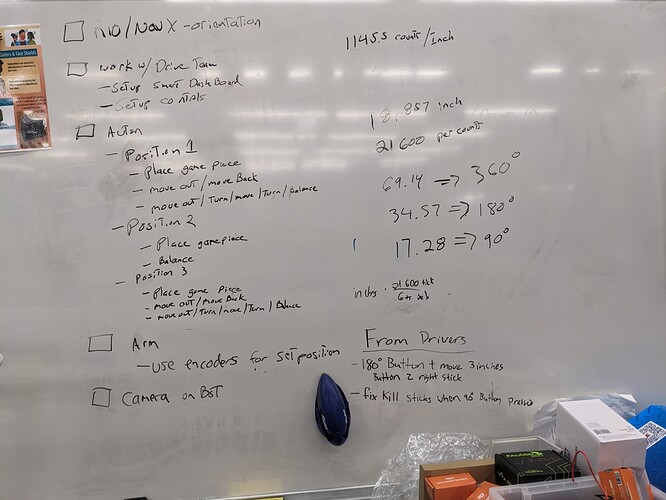 RIO/NavX -orientation
Work w/ Drive Team
- Setup Smart DashBoard
- Setup controls
Auton
- Position 1
- Place game piece
- move out/move Back
- move out/Turn/move/Turn/Balance
- Position 2
- Place gamepiece
- Balance
- Position 3
- Place game Piece
- move out/move Back
- move out/Turn/move/Turn/Balance
Arm
- Use encoders for set position
Camera on BoT
1145.5 counts/inch
18.857 inch
21600 per counts
69.14 => 360°
34.57 => 180°
17.28 => 90°
21600
From Drivers
- 180° Button + move 3 inches
Button 2 right stick
- fix Kill sticks when 90° Button Pressed
FALCON